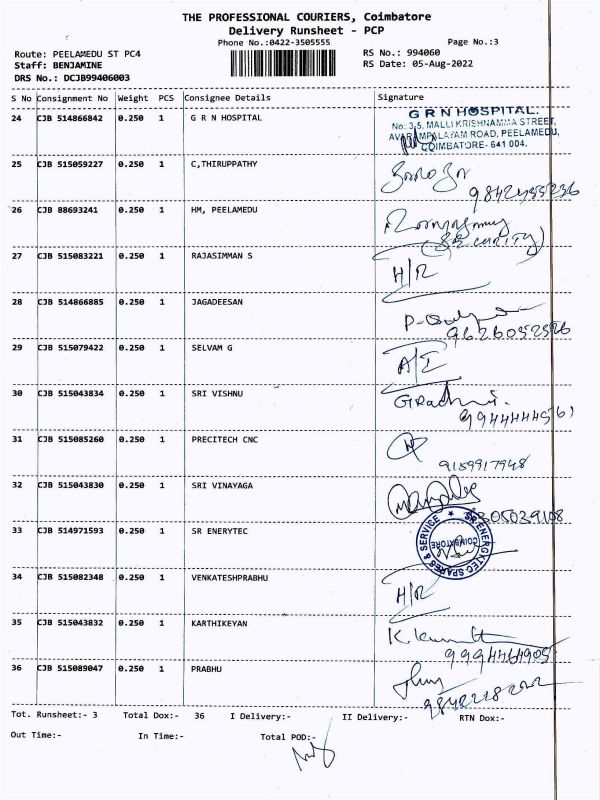 THE PROFESSIONAL COURIERS, Coimbatore
Delivery Runsheet - PCP
Phone No.:0422-3505555
Page No.:3
Route: PEELAMEDU ST PC4
RS No.: 994060
Staff: BENJAMINE
RS Date: 05-Aug-2022
DRS No.: DCJB99406003
S No Consignment No Weight PCS Consignee Details Signature
24 CJB 514866842 0.250 1 G R N HOSPITAL
G R N HOSPITAL.
No: 3,5, MALLI KRISHNAMMA STREET,
AVARAMPALAYAM ROAD, PEELAMEDU,
COIMBATORE- 641 004.
25 CJB 515059227 0.250 1 C,THIRUPPATHY
26 CJB 88693241 0.250 1 HM, PEELAMEDU
(SECURITY)
27 CJB 515083221 0.250 1 RAJASIMMAN S
H/R
28 CJB 514866885 0.250 1 JAGADEESAN
9626052526
29 CJB 515079422 0.250 1 SELVAM G
A/I
30 CJB 515043834 0.250 1 SRI VISHNU
31 CJB 515085260 0.250 1 PRECITECH CNC
9159917948
32 CJB 515043830 0.250 1 SRI VINAYAGA
33 CJB 514971593 0.250 1 SR ENERYTEC
SR ENERGYTEC SPARES & SERVICE
COIMBATORE
34 CJB 515082348 0.250 1 VENKATESHPRABHU
H/R
35 CJB 515043832 0.250 1 KARTHIKEYAN
9994464905
36 CJB 515089047 0.250 1 PRABHU
Tot. Runsheet:- 3 Total Dox:- 36 I Delivery:- II Delivery:- RTN Dox:-
Out Time:- In Time:- Total POD:-